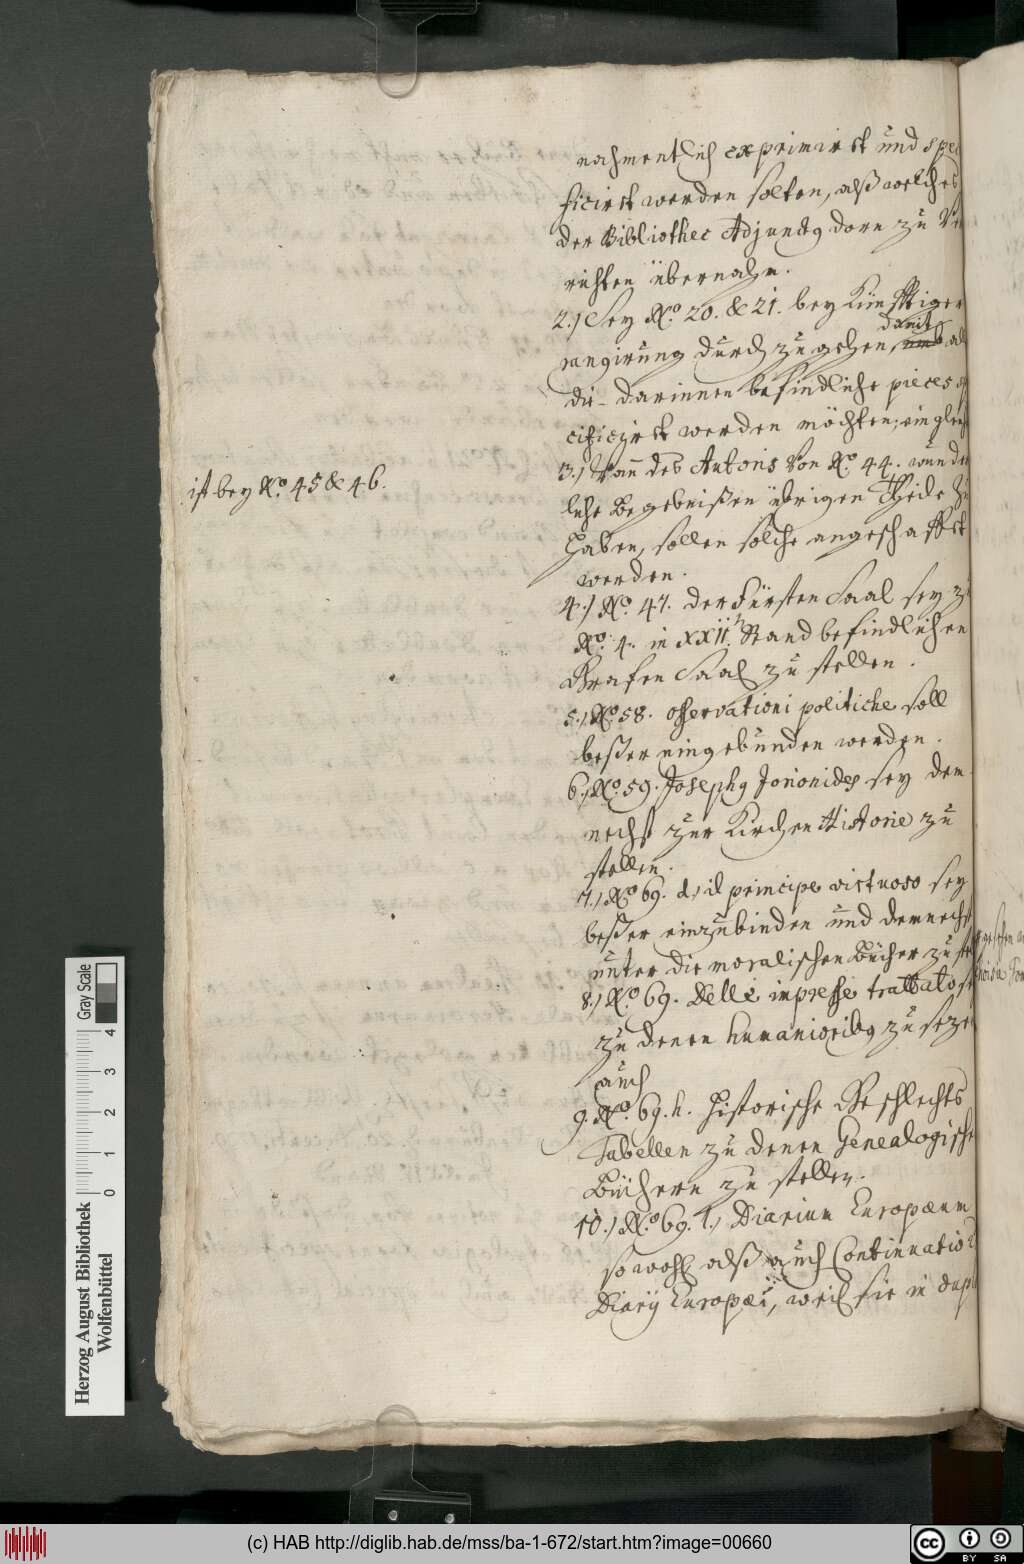 nahmentlich exprimirt und spec
ficirt werden solten, alß welches
der Bibliothec Adjunctg dorn zu Ver
richten übernahm.
2.) Sey No. 20. & 21. bey Künfftiger
damit
rangirung durch zugehen, umb al
die darinnen befindliche pieces sp
cificirt werden möchten;
3.) Wann des Autoris Von No. 44. wunder
ist bey No. 45 & 46.
liche Begebnißen übrigen Theile zu
haben, sollen solche angeschafft
werden.
4.) No. 47. der Fürsten Saal sey zu
No. 4. in XXII. Stand befindlichen
Grafen Saal zu stellen.
5.) No. 58. osservationi politiche soll
beßer eingebunden werden.
6.) No. 59. Josephg Jorionides sey dem
nechst zur Kirchen Historie zu
stellen.
7.) No. 69. d., il principe virtuoso sey
beßer einzubinden und demnechst
unter die moralischen Bücher zu ste
8.) No. 69. Delle impresse trattato
zu denen humanioribg zu seze
auch
9. No. 69. h. Historische Geschlechts
Tabellen zu denen Genealogische
Büchern zu stellen.
10.) No. 69. l., Diarium Europæum
so wohl alß auch Continuatio
Diarij Europæi, weil sie in dupl
Gray Scale
4 3 2 1 0
Herzog August Bibliothek
Wolfenbüttel
(c) HAB http://diglib.hab.de/mss/ba-1-672/start.htm?image=00660
cc BY SA